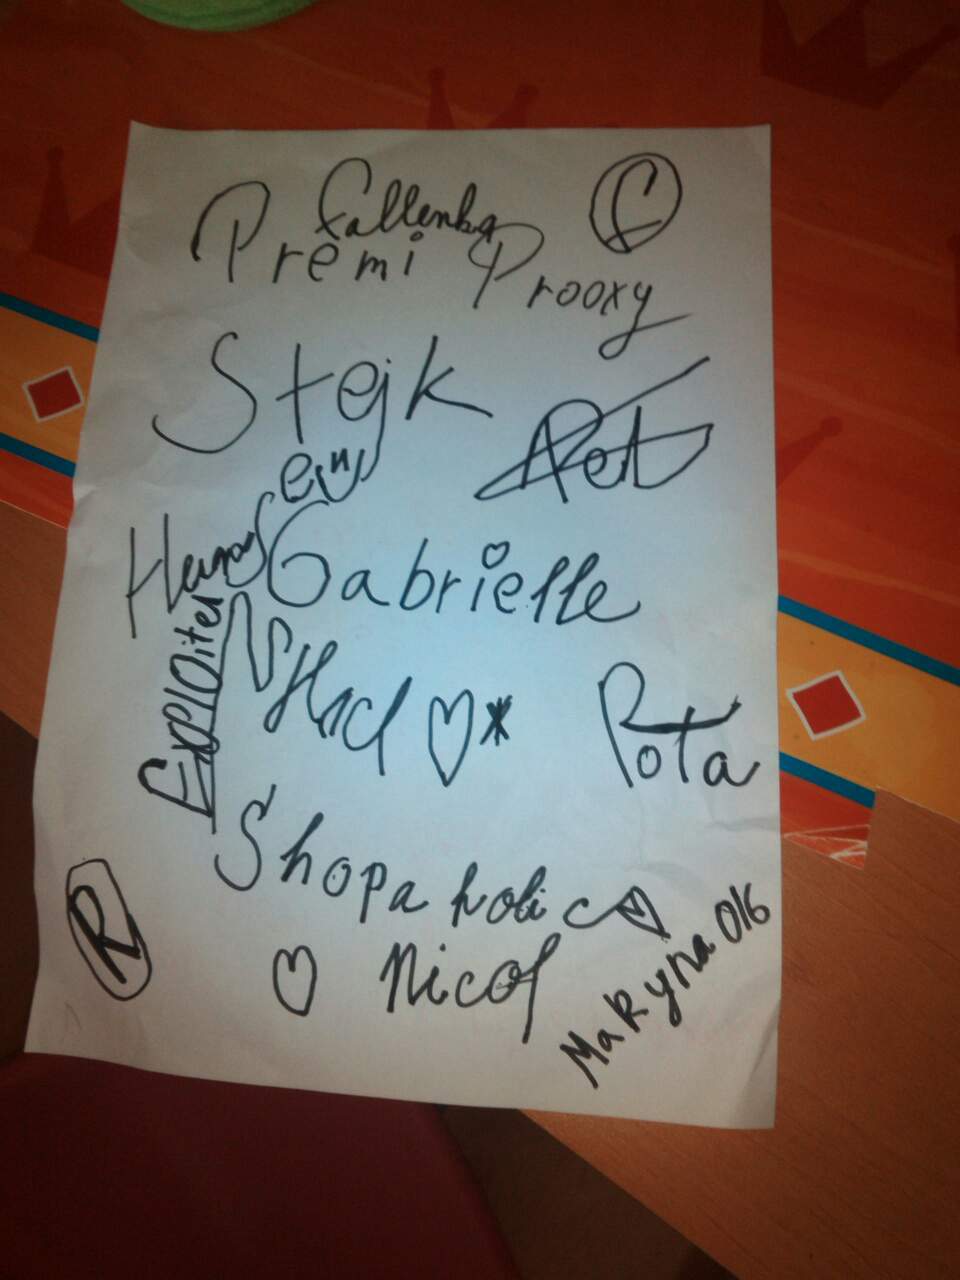 Fallenka
©
Premi Prooxy
Stejk
Pet
Gabrielle
ExplOiter
Pota
Shopaholic
Nicol
Makyna 016
R